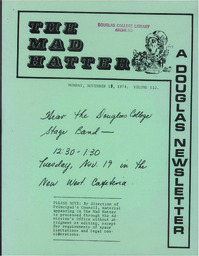 DOUGLAS COLLEGE LIBRARY
ARCHIVES
THE
MAD
HATTER
A DOUGLAS NEWSLETTER
MONDAY, NOVEMBER 18, 1974. VOLUME III.
Hear the Douglas College
Stage Band —
12:30 - 1:30
Tuesday, Nov. 19 in the
New West Cafeteria.
PLEASE NOTE: By direction of
Principal's Council, material
appearing in The Mad Hatter
is processed through the Ad-
mission's Office without ab-
ridgment or editing, except
for requirements of space
limitations and legal con-
siderations.